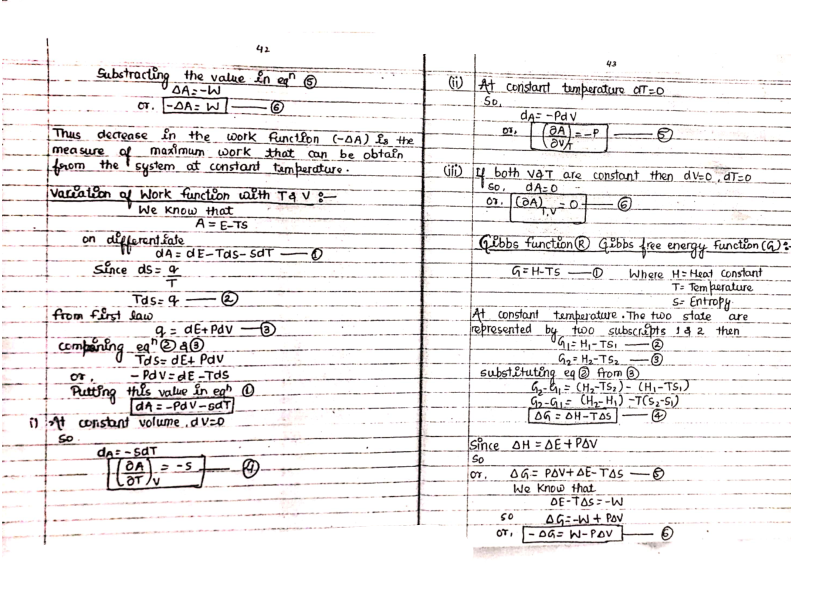 42
Substracting the value in eqⁿ ⑤
ΔA = -W
or. -ΔA = W —— ⑥
Thus decrease in the work function (-ΔA) is the
measure of maximum work that can be obtain
from the system at constant temperature.
Variation of Work function with T & V :—
We know that
A = E-TS
on differentiate
dA = dE-Tds-SdT —— ①
Since ds = q/T
Tds = q —— ②
from first law
q = dE + PdV —— ③
compairing eqⁿ ② & ③
Tds = dE + PdV
or, - PdV = dE - TdS
Putting this value in eqⁿ ①
dA = -PdV - SdT
i) At constant volume, dV=0
so
dA = -SdT
(∂A/∂T)V = -S —— ④
43
(ii) At constant temperature dT=0
So,
dA = -PdV
or, (∂A/∂V)T = -P —— ⑤
(iii) If both V&T are constant then dV=0, dT=0
so, dA=0
or, (∂A)T,V = 0 —— ⑥
Gibbs function ® Gibbs free energy function (G) :-
G = H-TS —— ① Where H = Heat Constant
T = Temperature
S = Entropy
At constant temperature. The two state are
represented by two subscripts 1 & 2 then
G1 = H1-TS1 —— ②
G2 = H2-TS2 —— ③
substituting eq ② from ③
G2-G1 = (H2-TS2) - (H1-TS1)
G2-G1 = (H2-H1) -T(S2-S1)
ΔG = ΔH-TΔS —— ④
Since ΔH = ΔE + PΔV
So
or. ΔG = PΔV+ΔE-TΔS —— ⑤
We Know that
ΔE-TΔS = -W
so ΔG = -W + PΔV
or, -ΔG = W-PΔV —— ⑥